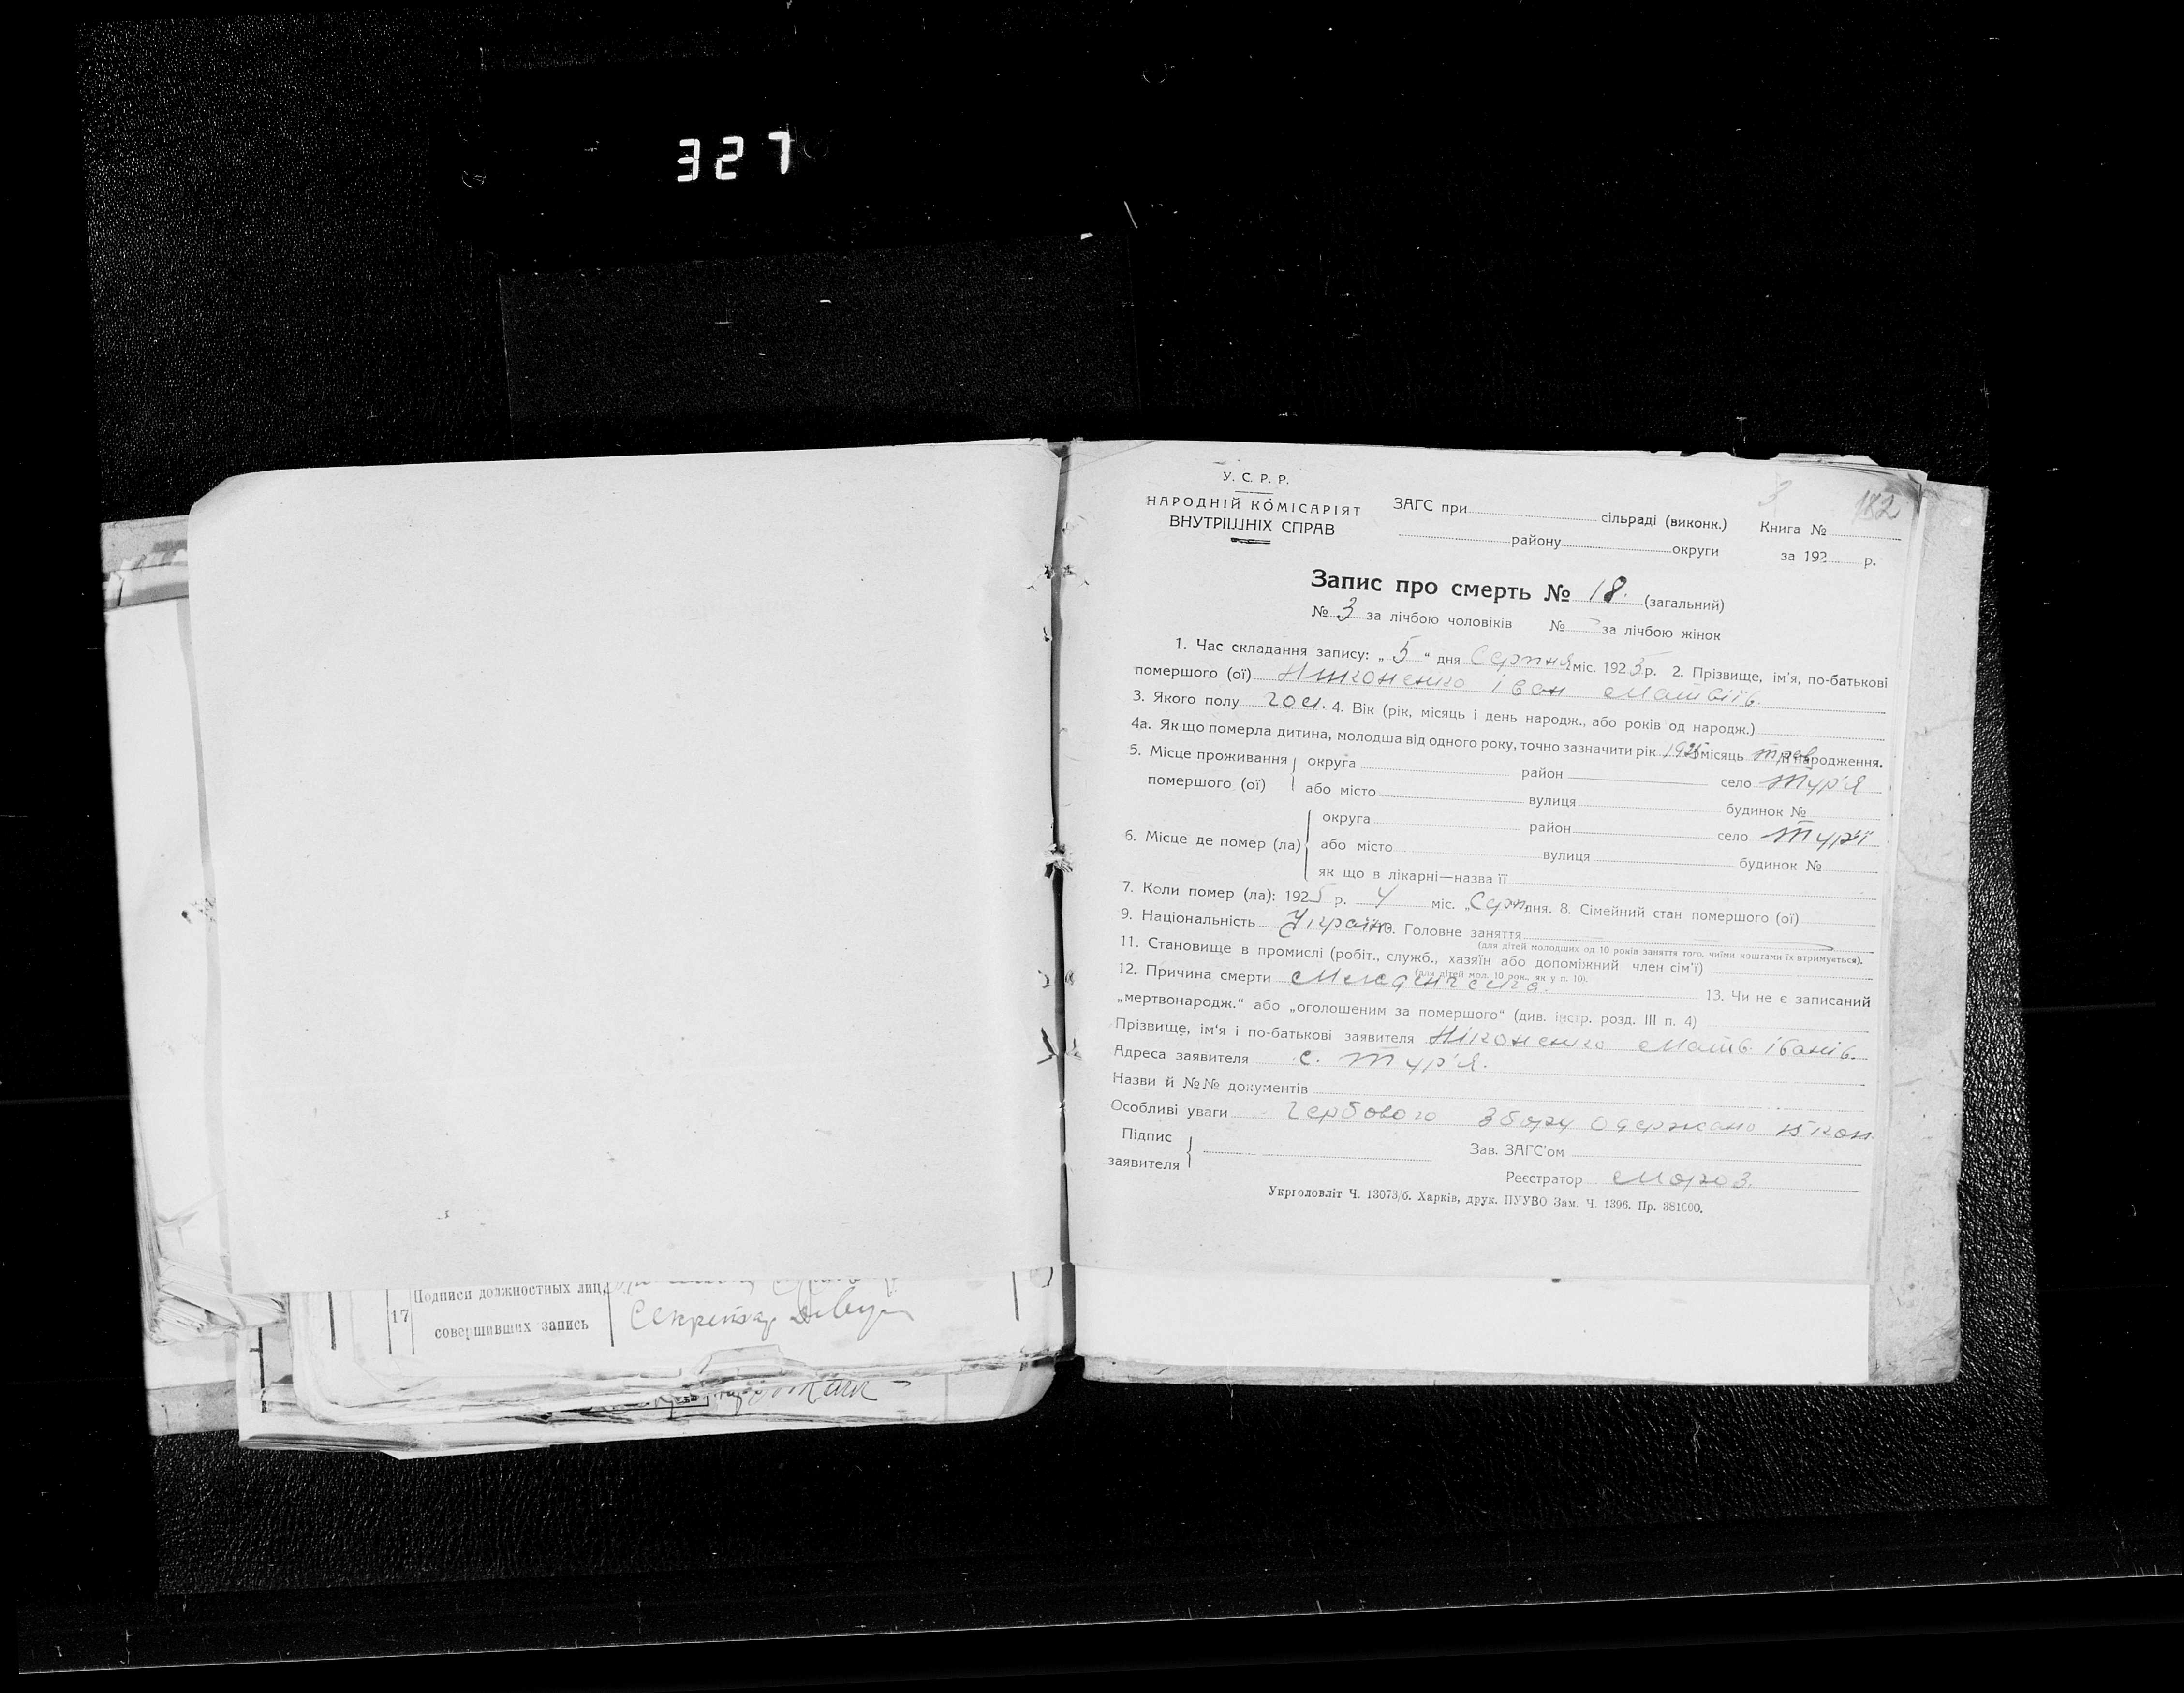 327
У. С. Р. Р.
НАРОДНІЙ КОМІСАРІЯТ
ВНУТРІШНІХ СПРАВ
ЗАГС при сільраді (виконк.)
району округи
3 182
Книга №
за 192 р.
Запис про смерть № 18. (загальний)
№ 3 за лічбою чоловіків № за лічбою жінок
1. Час складання запису: „ 5 “ дня Серпня міс. 1925 р. 2. Прізвище, ім'я, по-батькові
помершого (ої) Ніконенко іван Матвіїв.
3. Якого полу чол. 4. Вік (рік, місяць і день народж., або років од народж.)
4а. Як що померла дитина, молодша від одного року, точно зазначити рік 1925 місяць трав народження.
5. Місце проживання помершого (ої) округа район село Тур'я
або місто вулиця будинок №
6. Місце де помер (ла) округа район село Тур'ї
або місто вулиця будинок №
як що в лікарні—назва її
7. Коли помер (ла): 1925 р. 4 міс. „Серп дня. 8. Сімейний стан помершого (ої)
9. Національність Україн 10. Головне заняття
(для дітей молодших од 10 років заняття того, чиїми коштами їх втримується).
11. Становище в промислі (робіт., служб., хазяїн або допоміжний член сім'ї)
(для дітей мол. 10 рок., як у п. 10).
12. Причина смерти Младенческа. 13. Чи не є записаний
„мертвонародж.“ або „оголошеним за помершого“ (див. інстр. розд. III п. 4)
Прізвище, ім'я і по-батькові заявителя Ніконенко Матв. іванів.
Адреса заявителя с. Тур'я.
Назви й №№ документів
Особливі уваги Гербового збору одержано 15 коп
Підпис заявителя Зав. ЗАГС'ом
Реєстратор Мороз.
Укрголовліт Ч. 13073/б. Харків, друк. ПУУВО Зам. Ч. 1396. Пр. 381000.
17 Подписи должностных лиц,
совершивших запись
Секретар